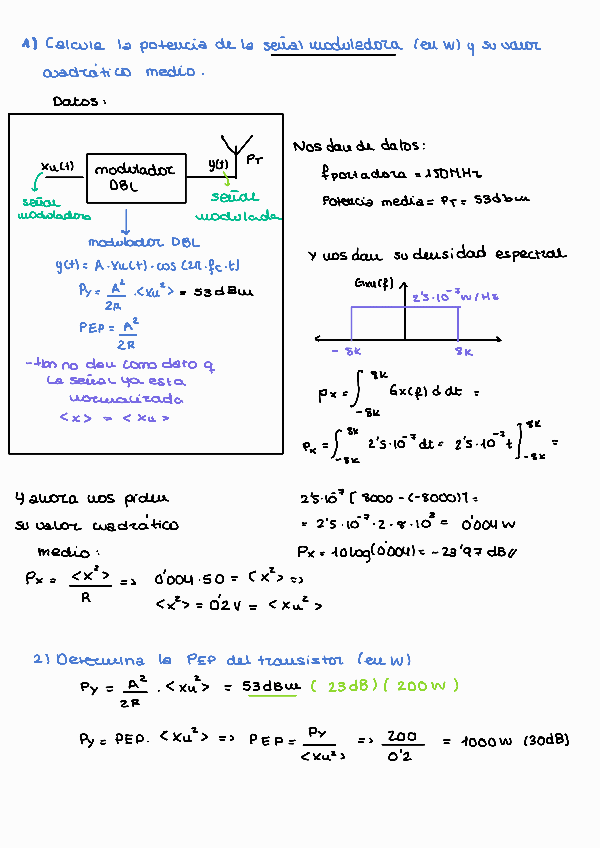 1) Calcula la potencia de la señal moduladora (en W) y su valor
cuadrático medio.
Datos:
xu(t)
modulador
DBL
y(t)
PT
señal
moduladora
señal
modulada
modulador DBL
y(t) = A·xu(t)·cos(2π·fc·t)
Py = A²/2R · <xu²> = 53dBm
PEP = A²/2R
-tbn no dan como dato q
la señal ya esta
normalizada
<x> = <xu>
Nos dan de datos:
fportadora = 150MHz
Potencia media = PT = 53dbm
Y nos dan su densidad espectral
Gxu(f)
2'5·10⁻⁷ W/Hz
-8K
8K
Px = ∫₋₈ₖ⁸ᴷ Gx(f) d dt =
Px = ∫₋₈ₖ⁸ᴷ 2'5·10⁻⁷ dt = 2'5·10⁻⁷ t ∫₋₈ₖ⁸ᴷ =
2'5·10⁻⁷ [8000 - (-8000)] =
= 2'5·10⁻⁷·2·8·10³ = 0'004 W
Px = 10log(0'004) = -23'97 dB//
Y ahora nos piden
su valor cuadrático
medio:
Px = <x²>/R => 0'004·50 = <x²> =>
<x²> = 0'2V = <xu²>
2) Determina la PEP del transistor (en W)
Py = A²/2R · <xu²> = 53dBm (23dB) (200W)
Py = PEP· <xu²> => PEP = Py/<xu²> => 200/0'2 = 1000W (30dB)